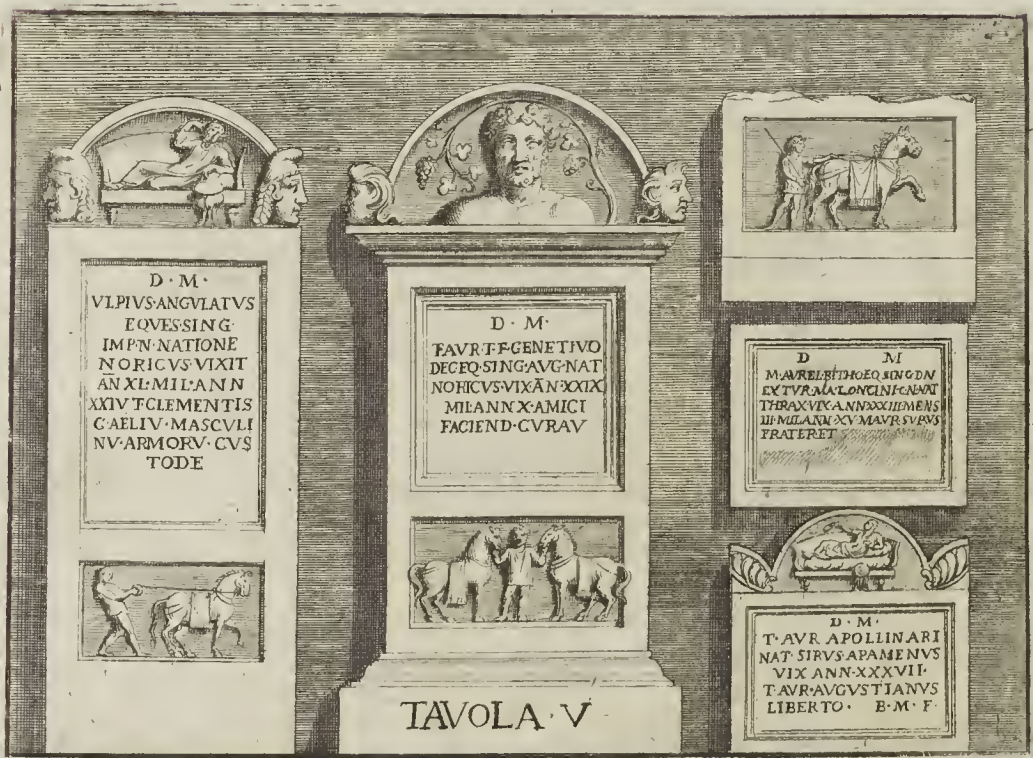 D · M ·
VLPIVS · ANGVLATVS
EQVES · SING ·
IMP · N · NATIONE
NORICVS · VIXIT
ĀN XL · MIL · ANN
XXIV T · CLEMENTIS
C · AELIV · MASCULI
NV · ARMORV · CVS
TODE
D · M ·
T · AVR · T · F · GENETIVO
DEC · EQ · SING · AVG · NAT
NORICVS · VIX · ĀN · XXIX
MIL · ANN X · AMICI
FACIEND · CVRAV
D M
M · AVREL · BITHO EQ SING D N
EX TVR · MA · LONGINI · NAT
THRAX VIX · ANN XXXIII · MENS
III · MIL ANN · XV · M AVR SVRVS
FRATER ET
D · M ·
T · AVR APOLLINARI
NAT · SIRVS · APAMENVS
VIX ANN · XXXVII ·
T · AVR · AVGVSTIANVS
LIBERTO · B · M · F ·
TAVOLA · V